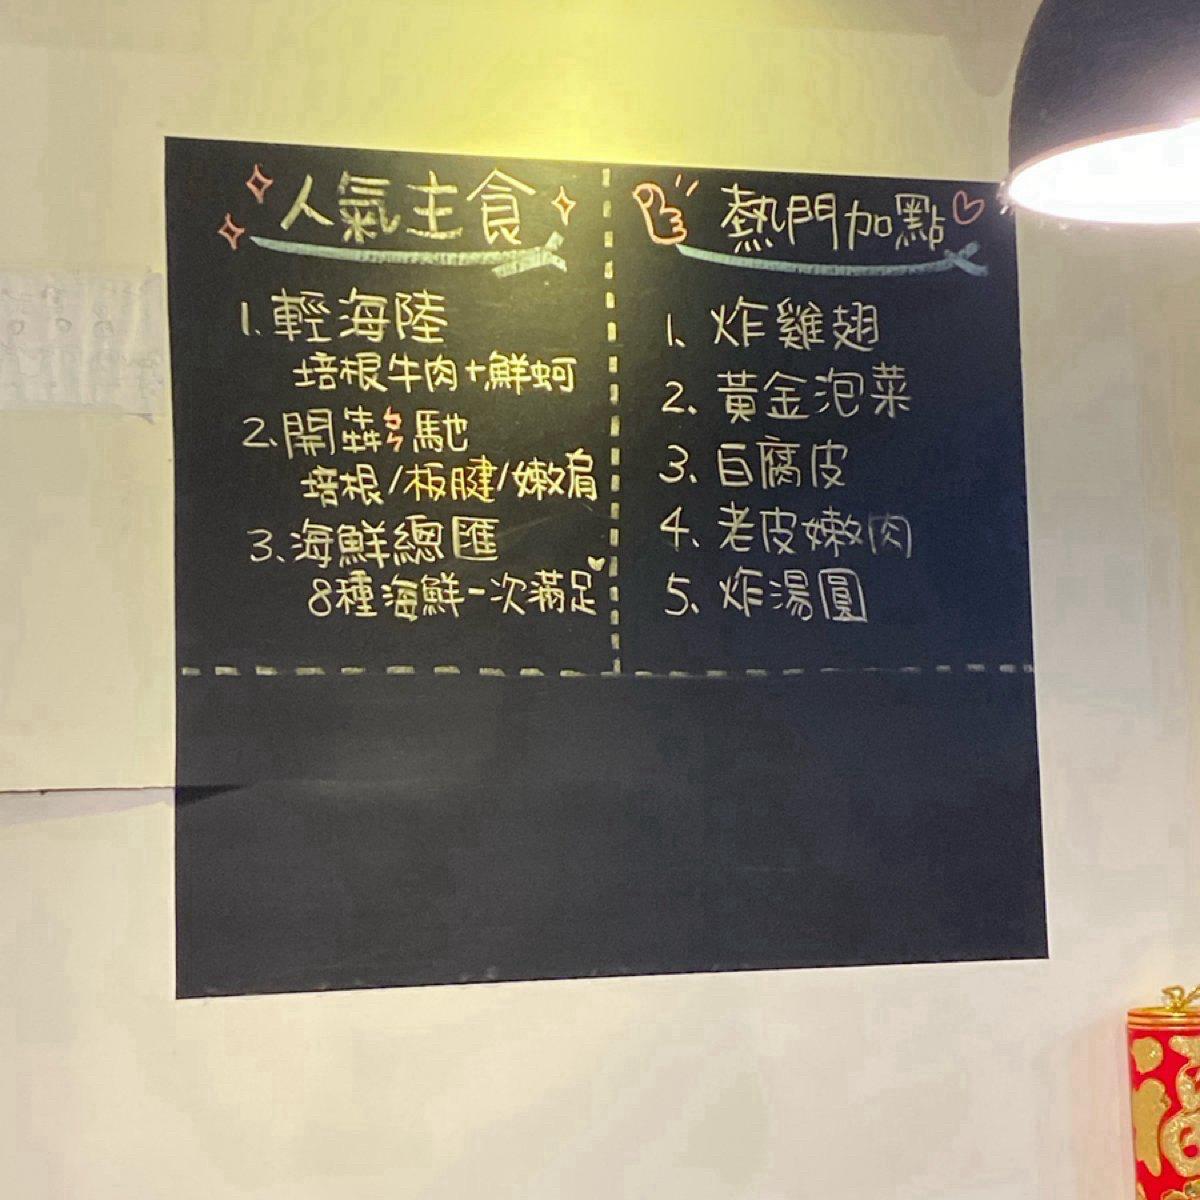 人氣主食
1. 輕海陸
培根牛肉+鮮蚵
2. 開犇ㄅㄣ馳
培根/板腱/嫩肩
3. 海鮮總匯
8種海鮮一次滿足
熱門加點
1. 炸雞翅
2. 黃金泡菜
3. 白腐皮
4. 老皮嫩肉
5. 炸湯圓